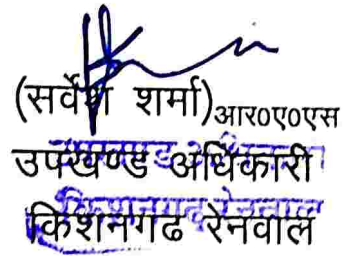 (सर्वेश शर्मा)आर०ए०एस
उपखण्ड अधिकारी
किशनगढ रेनवाल